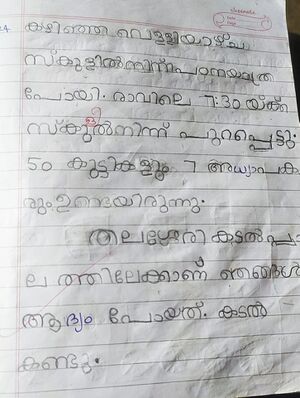 കഴിഞ്ഞ വെള്ളിയാഴ്ച
സ്കൂളിൽനിന്ന് പഠനയാത്ര
പോയി. രാവിലെ 7:30 യ്ക്ക്
സ്കൂൽനിന്ന് പുറപ്പെട്ടു.
50 കുട്ടികളും 7 അധ്യാപക
രും ഉണ്ടായിരുന്നു.
തലശ്ശേരി കടൽപാ
ല ത്തിലേക്കാണ് ഞങ്ങൾ
ആദ്യം പോയത്. കടൽ
കണ്ടു.